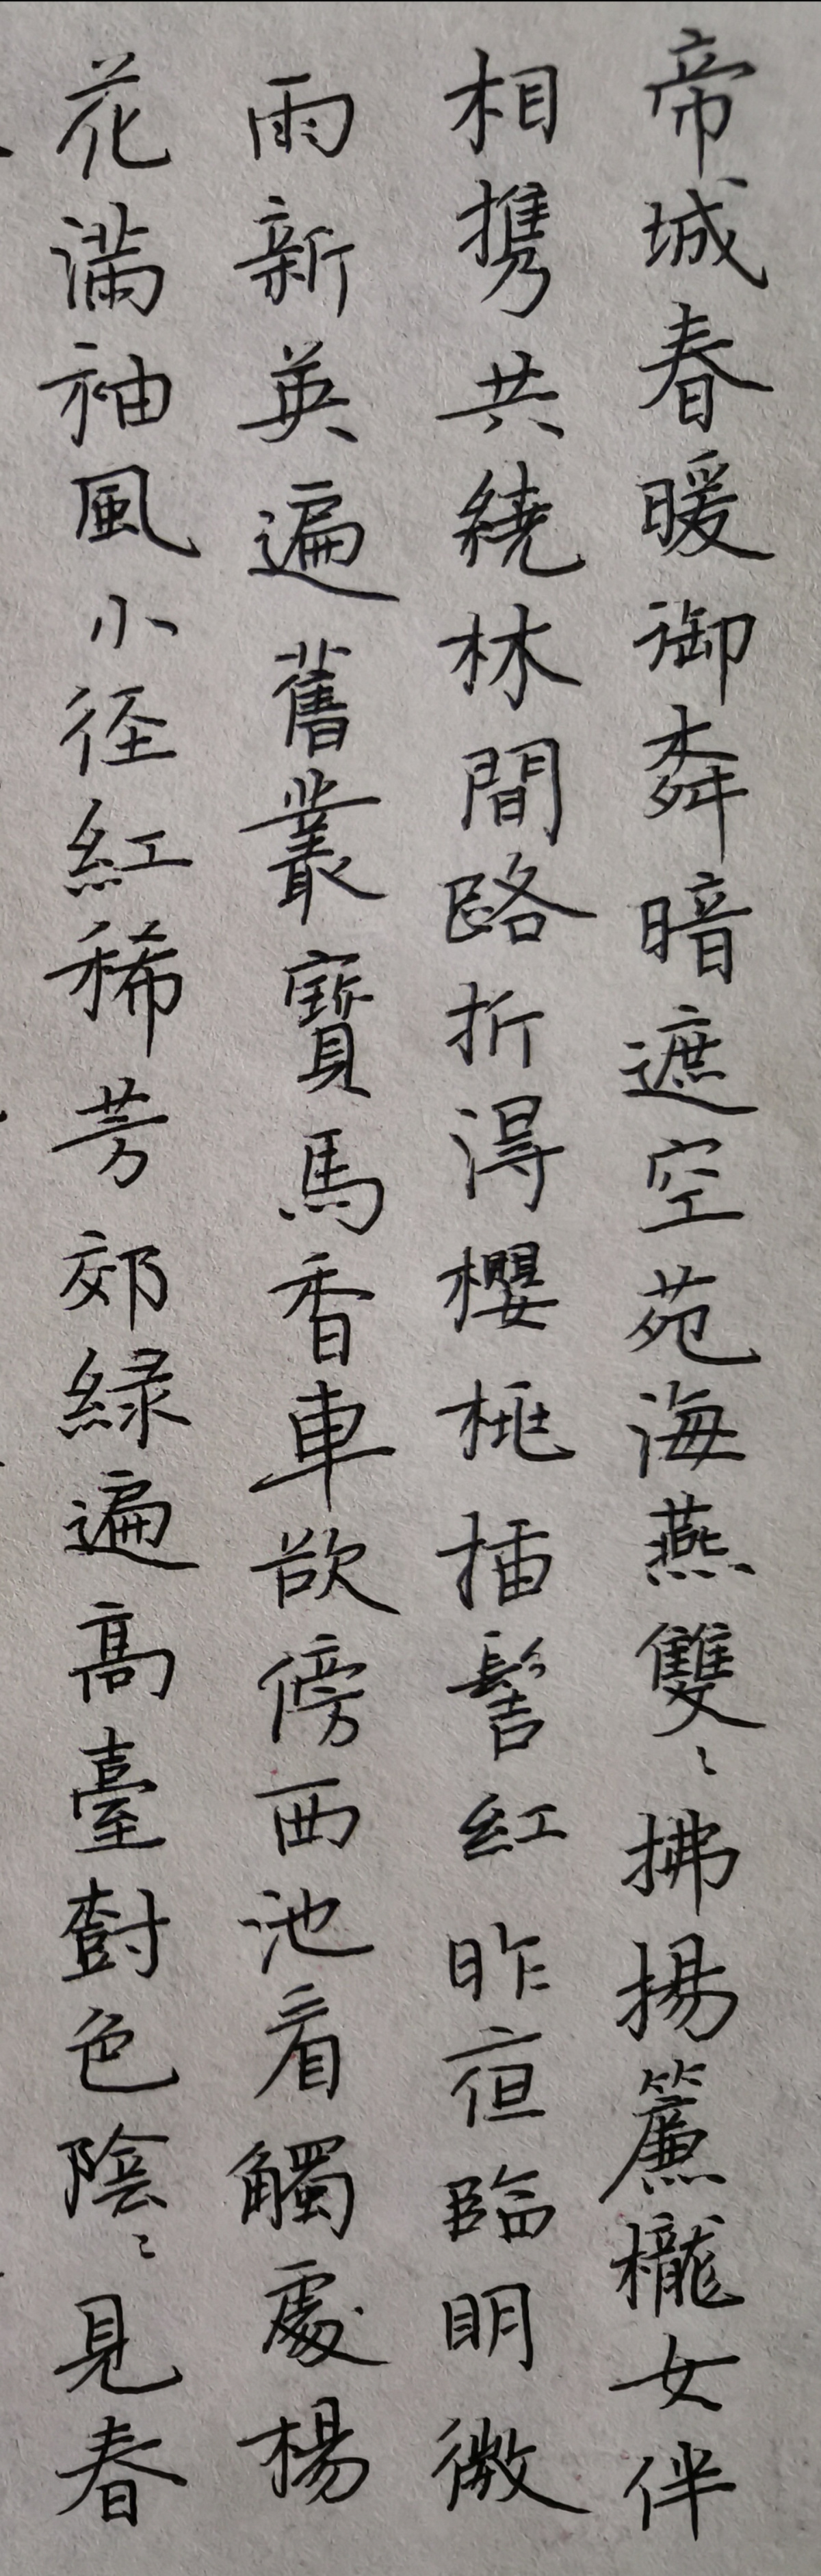 帝城春暖御柳暗遮空苑海燕雙〻拂揚簾櫳女伴
相携共繞林間路折得櫻桃插髻紅昨夜臨明微
雨新英遍舊叢寶馬香車欲傍西池看觸處楊
花滿袖風小徑紅稀芳郊緑遍高臺樹色陰〻見春